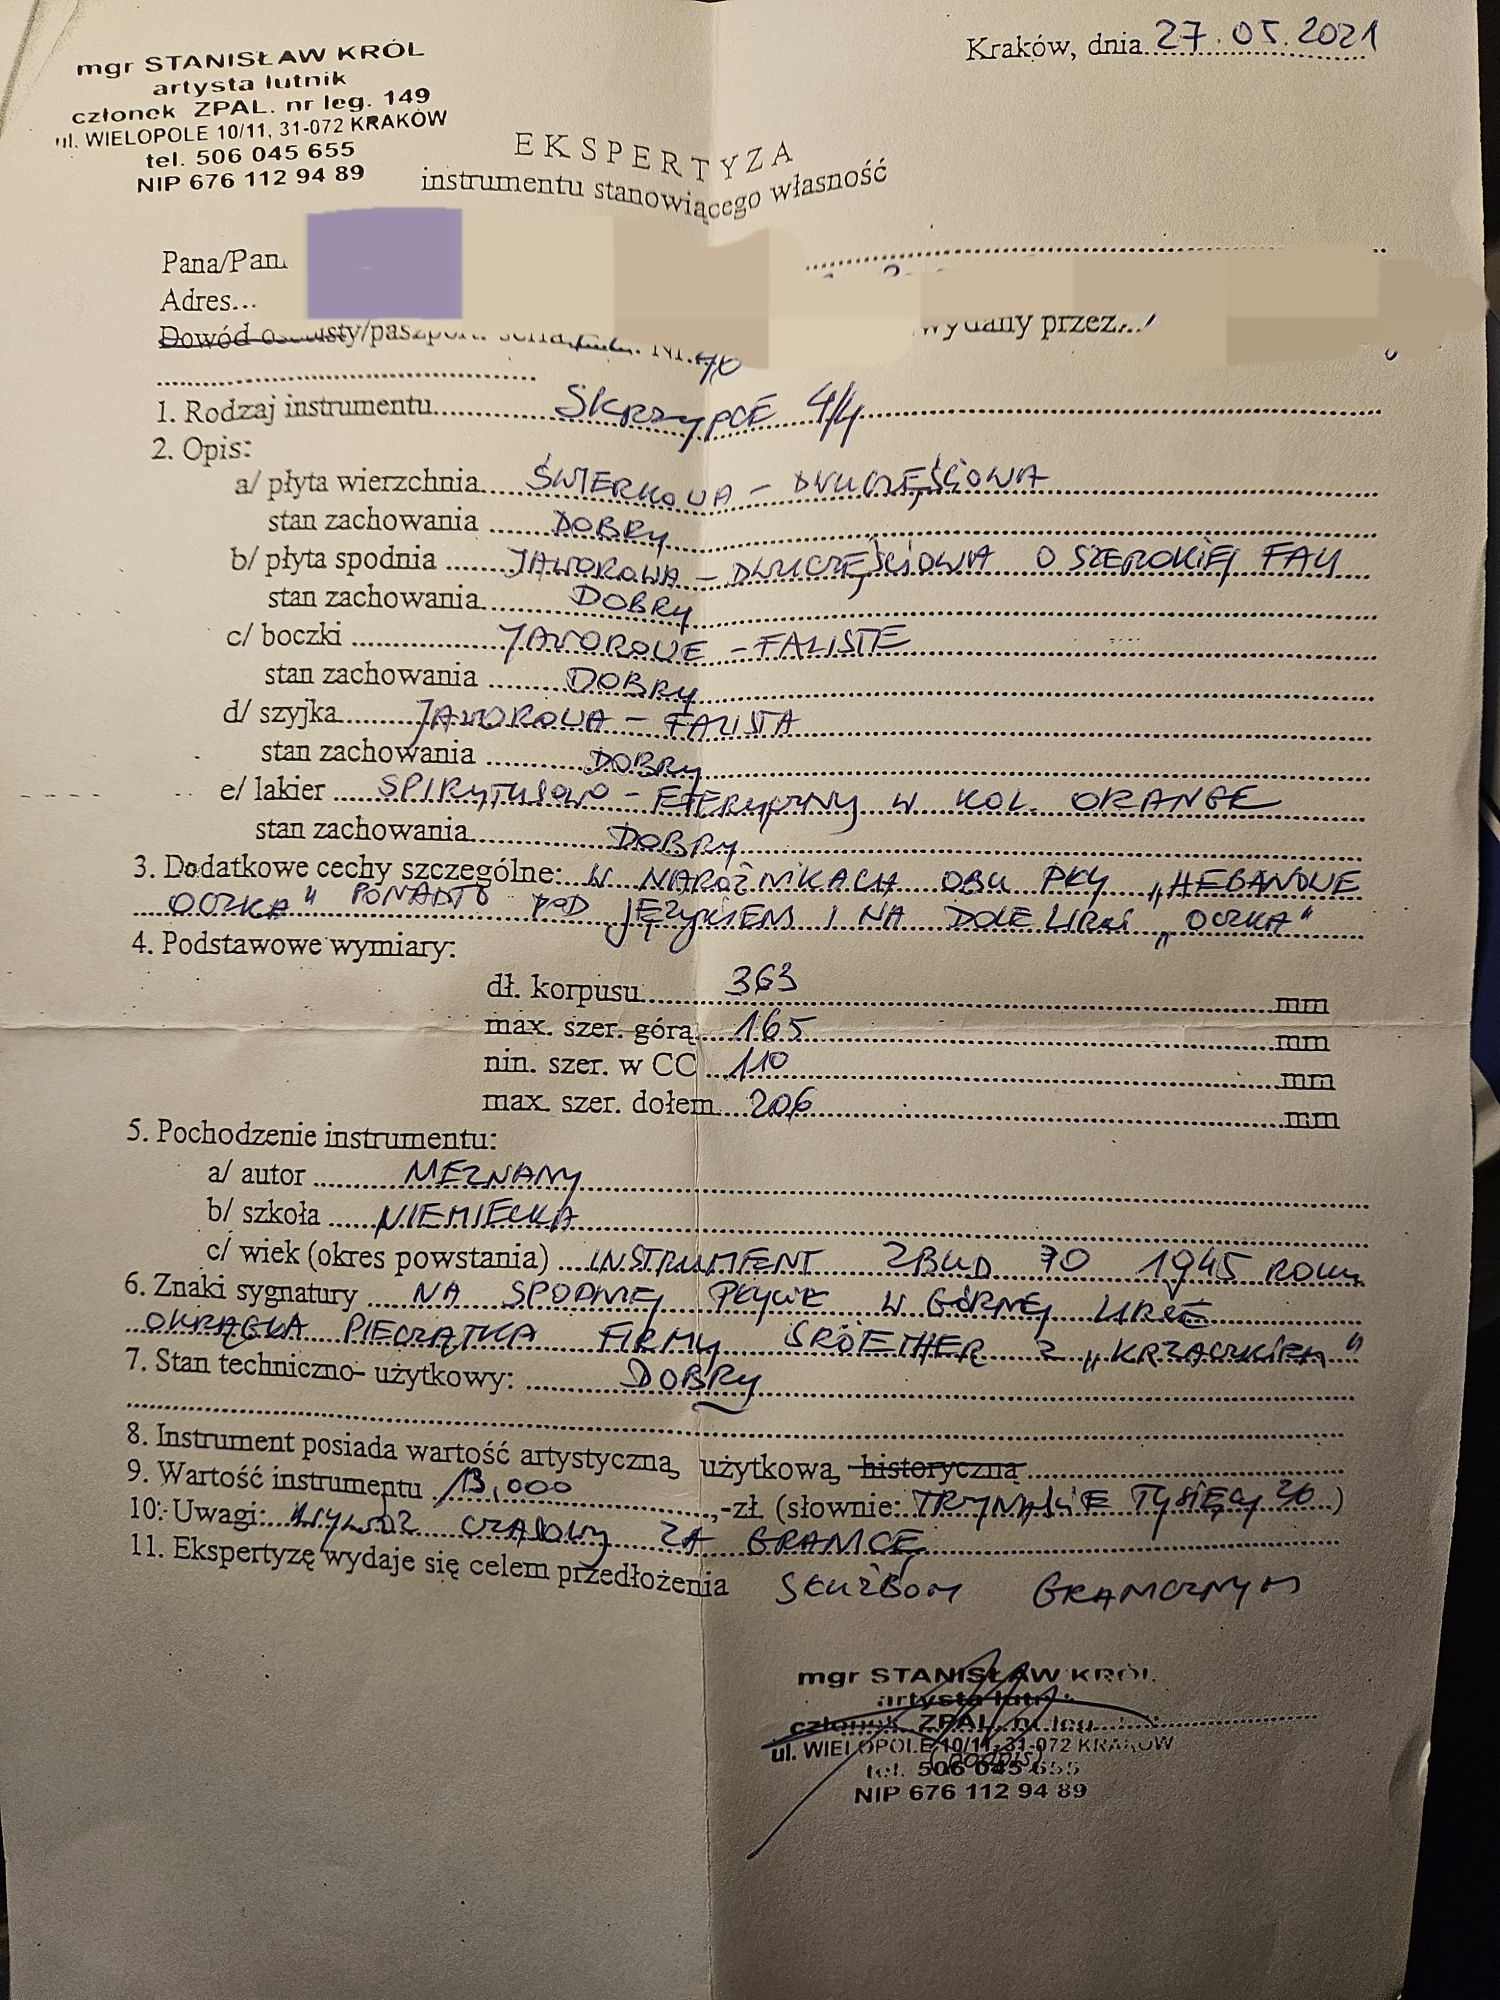 Kraków, dnia 27.05.2021
mgr STANISŁAW KRÓL
artysta lutnik
członek ZPAL. nr leg. 149
ul. WIELOPOLE 10/11, 31-072 KRAKÓW
tel. 506 045 655
NIP 676 112 94 89
EKSPERTYZA
instrumentu stanowiącego własność
Pana/Pani
Adres...
Dowód osobisty/paszport: seria Nr. wydany przez...
1. Rodzaj instrumentu SKRZYPCE 4/4
2. Opis:
a/ płyta wierzchnia ŚWIERKOWA - DWUCZĘŚCIOWA
stan zachowania DOBRY
b/ płyta spodnia JAWOROWA - DWUCZĘŚCIOWA O SZEROKIEJ FALI
stan zachowania DOBRY
c/ boczki JAWOROWE - FALISTE
stan zachowania DOBRY
d/ szyjka JAWOROWA - FALISTA
stan zachowania DOBRY
e/ lakier SPIRYTUSOWO - ETERYCZNY W KOL. ORANGE
stan zachowania DOBRY
3. Dodatkowe cechy szczególne: W NAROŻNIKACH OBU PŁYT „HEBANOWE
OCZKA" PONADTO POD JĘZYKIEM I NA DOLE LIRKI „OCZKA"
4. Podstawowe wymiary:
dł. korpusu 363 mm
max. szer. górą 165 mm
nin. szer. w CC 110 mm
max. szer. dołem 206 mm
5. Pochodzenie instrumentu:
a/ autor NIEZNANY
b/ szkoła NIEMIECKA
c/ wiek (okres powstania) INSTRUMENT ZBUD PO 1945 ROKU
6. Znaki sygnatury NA SPODNIEJ PŁYCIE W GÓRNEJ LIRCE
OKRĄGŁA PIECZĄTKA FIRMY SRÖETHER Z „KRZACZKIEM"
7. Stan techniczno- użytkowy: DOBRY
8. Instrument posiada wartość artystyczną, użytkową, historyczną
9. Wartość instrumentu 13,000 ,-zł. (słownie: TRZYNAŚCIE TYSIĘCY ZŁ )
10. Uwagi: WYWÓZ CZASOWY ZA GRANICĘ
11. Ekspertyzę wydaje się celem przedłożenia SŁUŻBOM GRANICZNYM
mgr STANISŁAW KRÓL
artysta lutnik
członek ZPAL. nr leg.
ul. WIELOPOLE 10/11, 31-072 KRAKÓW
(podpis)
tel. 506 045 655
NIP 676 112 94 89